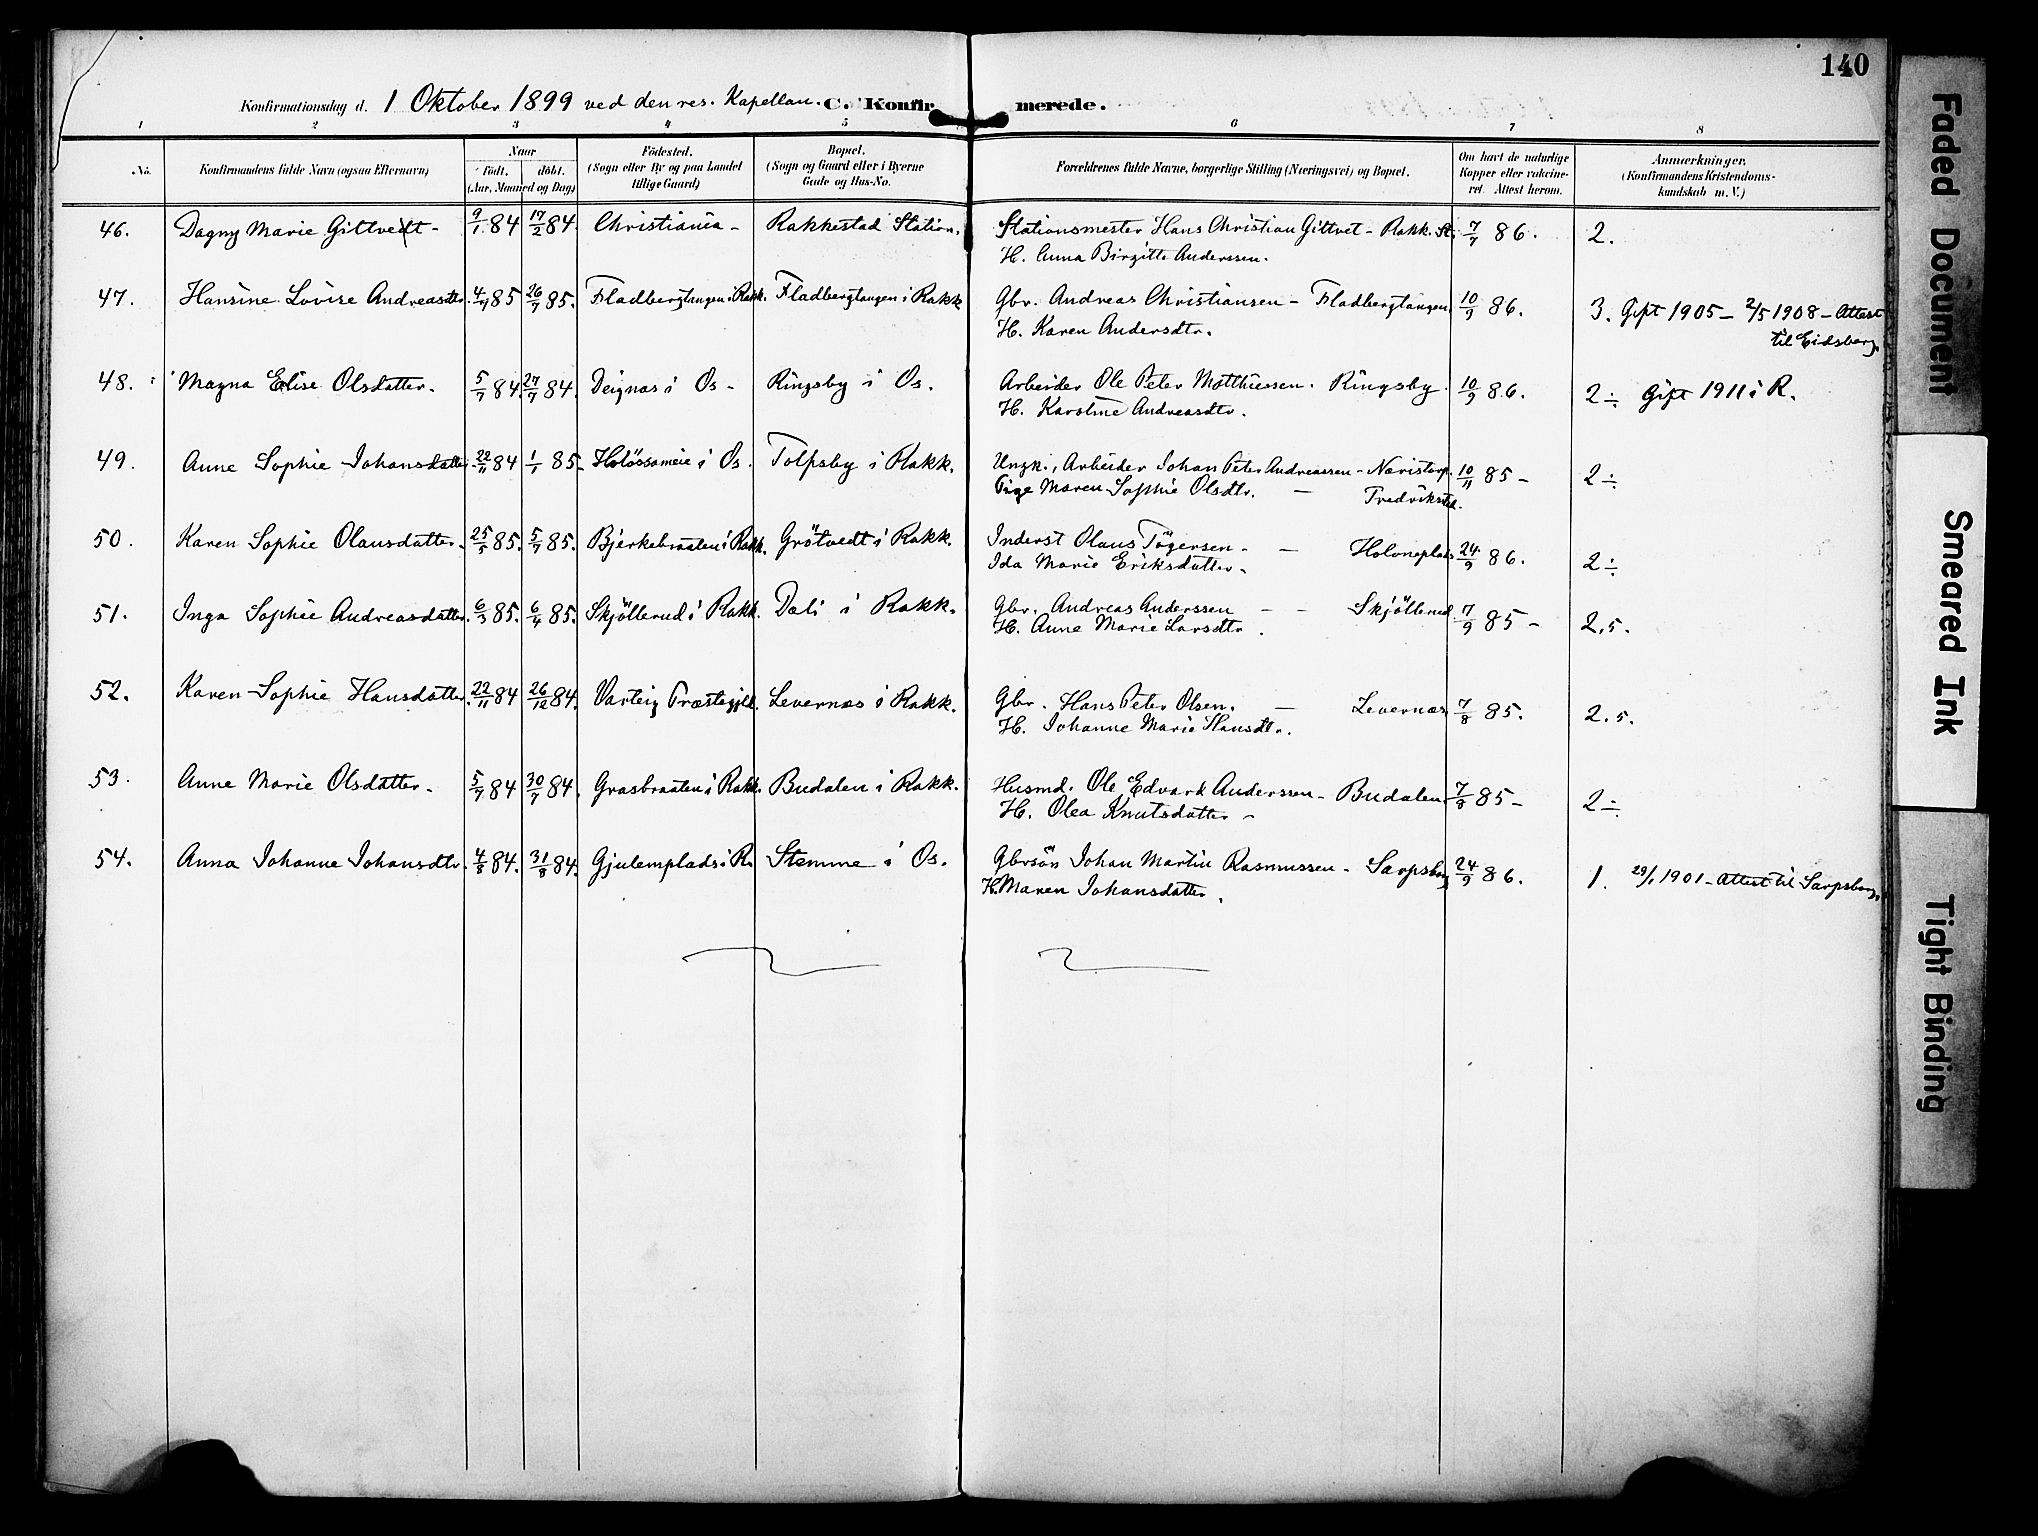 140
Konfirmationsdag d. 1 Oktober 1899 ved den res. Kapellan. C. Konfirmerede.
1 2 3 4 5 6 7 8
No. Konfirmandens fulde Navn (ogsaa Efternavn) Naar Født. døbt. (Aar, Maaned og Dag) Fødested. (Sogn eller By og paa Landet tillige Gaard) Bopæl. (Sogn og Gaard eller i Byerne Gade og Hus-No. Forældrenes fulde Navne, borgerlige Stilling (Næringsvei) og Bopæl. Om havt de naturlige Kopper eller vaccineret. Attest herom. Anmærkninger. (Konfirmandens Kristendomskundskab m. V.)
46. Dagny Marie Gittvedt - 9/1 84 17/2 84. Christiania - Rakkestad Station. Stationsmester Hans Christian Gittvet - Rakk. St. 7/7 86. 2.
H. Anna Birgitte Anderssen.
47. Hansine Lovise Andreasdtr. 4/4 85 26/7 85. Fladbergtangen i Rakk. Fladbergtangen i Rakk Gbr. Andreas Christiansen - Fladbergtangen. 10/9 86. 3. Gift 1905 - 2/5 1908 - Attest
H. Karen Andersdtr. til Eidsberg.
48. Magna Elise Olsdatter. 5/7 84. 27/7 84. Deignes i Os - Ringsby i Os. Arbeider Ole Peter Matthiessen. Ringsby. 10/9 86. 2 ÷ Gift 1911 i R.
H. Karoline Andreasdtr.
49. Anne Sophie Johansdatter. 22/11 84 1/1 85 - Holøssameie i Os. Tolpsby i Rakk. Ungk., Arbeider Johan Peter Andreassen - Næristorp. 10/11 85 - 2 ÷
Pige Maren Sophie Olsdtr. - Fredrikstad.
50. Karen Sophie Olausdatter. 25/5 85. 5/7 85. Bjerkebraaten i Rakk. Grøtvedt i Rakk. Inderst Olaus Tøgersen. - Holoneplads 24/9 86. 2 ÷
Ida Marie Eriksdatter.
51. Inga Sophie Andreasdatter. 6/3 85. 6/4 85. Skjøllerud i Rakk. Dæli i Rakk. Gbr. Andreas Anderssen - - Skjøllerud. 7/9 85 - 2,5.
H. Anne Marie Larsdtr.
52. Karen Sophie Hansdatter. 22/11 84 26/12 84. Varteig Præstegjeld. Levernæs i Rakk. Gbr. Hans Peter Olsen. - Levernæs 7/8 85. 2.5.
H. Johanne Marie Hansdtr.
53. Anne Marie Olsdatter. 5/7 84 30/7 84. Græsbraaten i Rakk. Budalen i Rakk. Husmd. Ole Edvard Anderssen - Budalen. 7/8 85 - 2 ÷
H. Olea Knutsdatter -
54. Anna Johanne Johansdtr. 4/8 84. 31/8 84. Gjulemplads i R. Stemme i Os. Gbrsøn Johan Martin Rasmussen - Sarpsborg 24/9 86. 1. 29/1 1901 - Attest til Sarpsborg.
H. Maren Johansdatter.
Faded Document
Smeared Ink
Tight Binding